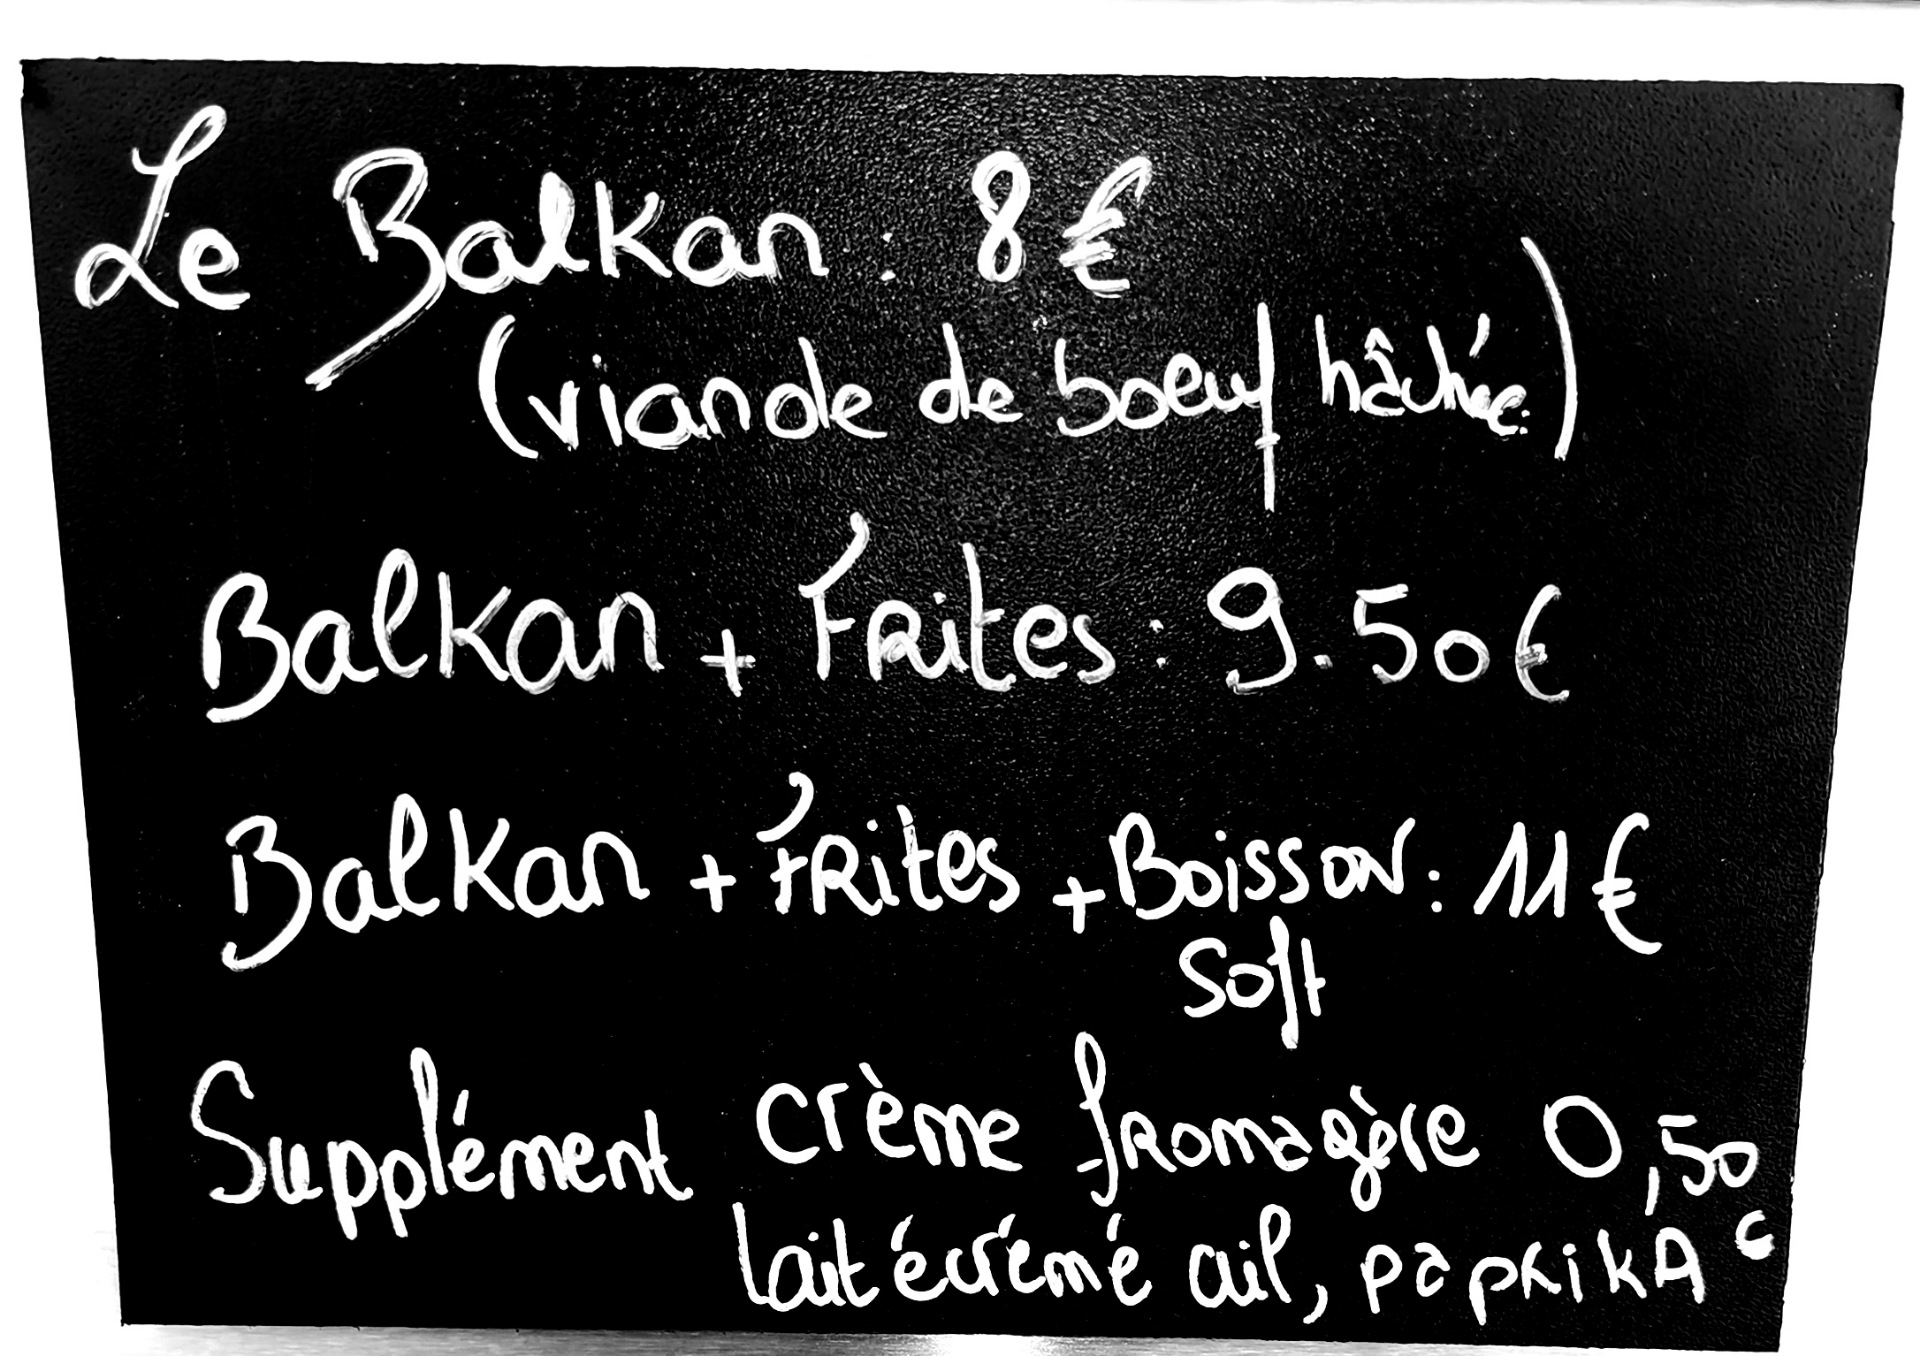 Le Balkan : 8 €
(viande de boeuf hâchée)
Balkan + FRites : 9.50€
Balkan + FRites + Boisson : 11€
Soft
Supplément crème fromagère 0,50
lait écrémé ail, paprikA €